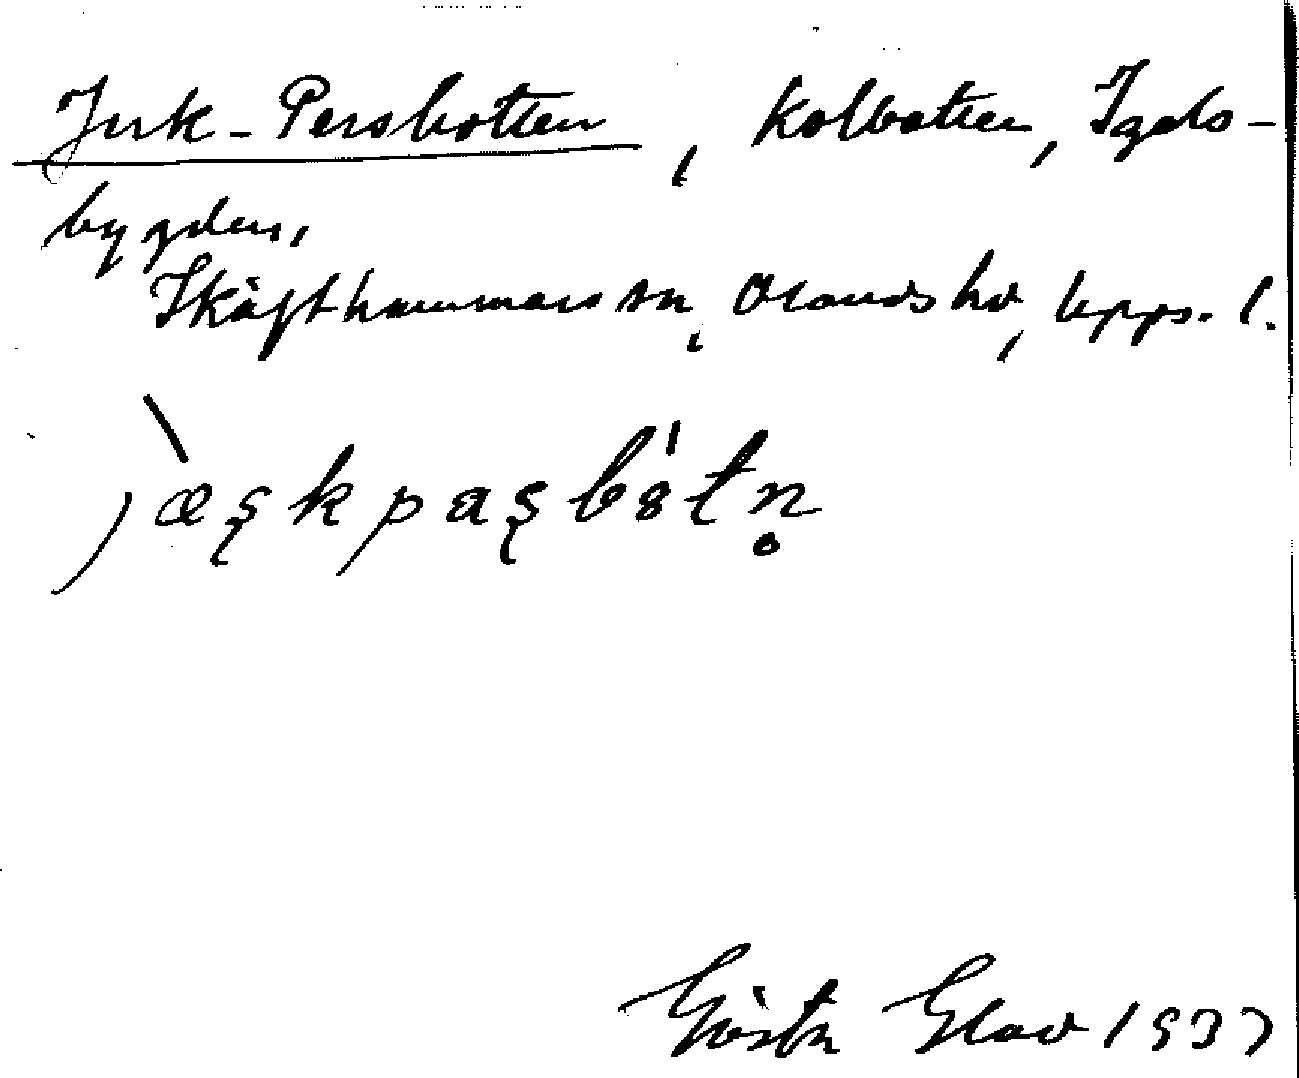 Jerk-Persbotten, kolbotten, Igels-
bygden,
Skäfthammars sn, Olands hd, Upps. l.
jæşkpaşbòtn̥
Gösta Glad 1937